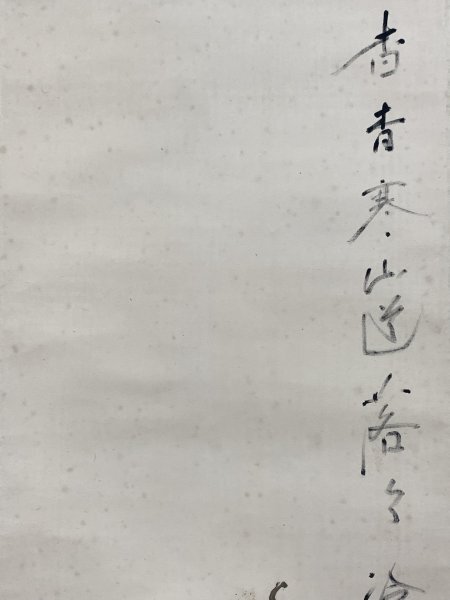 杳杳寒山道落々冷